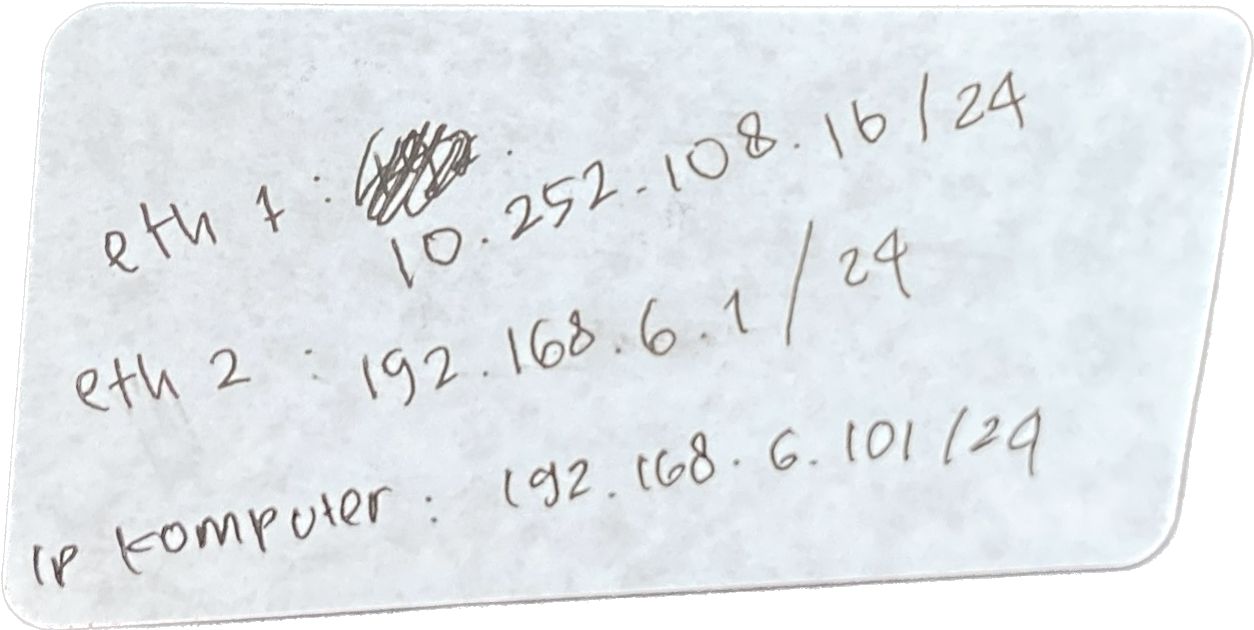 eth 1 :
10.252.108.16/24
eth 2 : 192.168.6.1/24
IP Komputer : 192.168.6.101/24